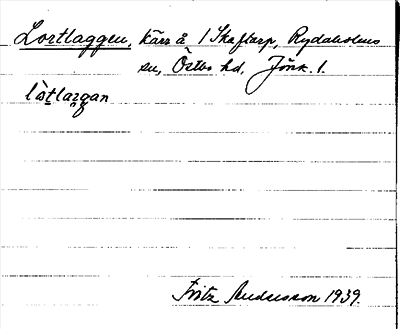 Lortlaggen, kärr å 1 Skaftarp, Rydaholms
sn, Östbo hd, Jönk. l.
lòṣṭlaŋgan
Fritz Andersson 1939.